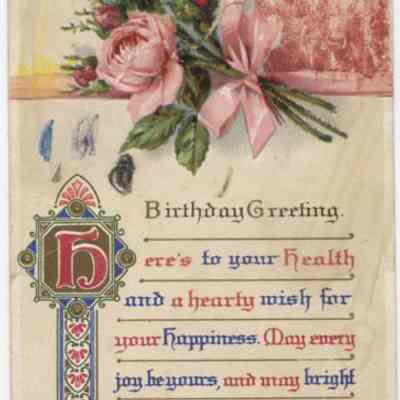 Birthday Greeting.
Here's to your Health
and a hearty wish for
your Happiness. May every
joy be yours, and may bright